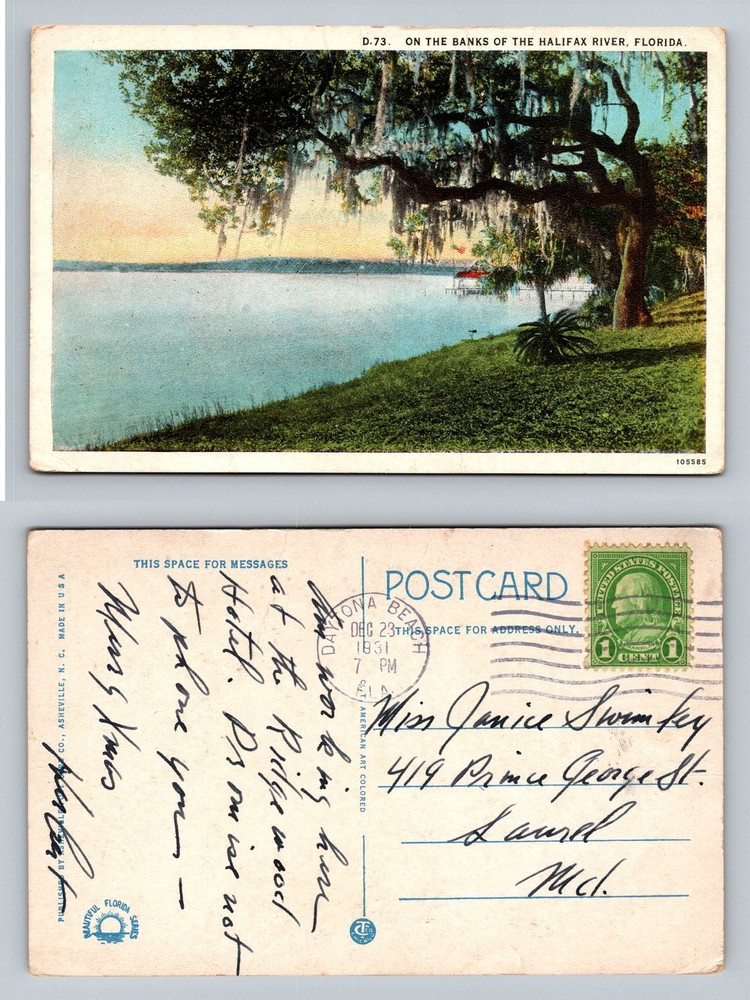 D-73. ON THE BANKS OF THE HALIFAX RIVER, FLORIDA.
105585
THIS SPACE FOR MESSAGES
POST CARD
THIS SPACE FOR ADDRESS ONLY.
DAYTONA BEACH
DEC 23
1931
7 PM
FLA.
UNITED STATES POSTAGE
FRANKLIN
1 CENT 1
Am working here
at the Ridgewood
Hotel. Promise not
to phone you —
Merry Xmas
Miss Janice
419 Prince George St.
Laurel
Md.
PUBLISHED BY ASHEVILLE CO., ASHEVILLE, N. C. MADE IN U S A
C.T. AMERICAN ART COLORED
BEAUTIFUL FLORIDA SERIES